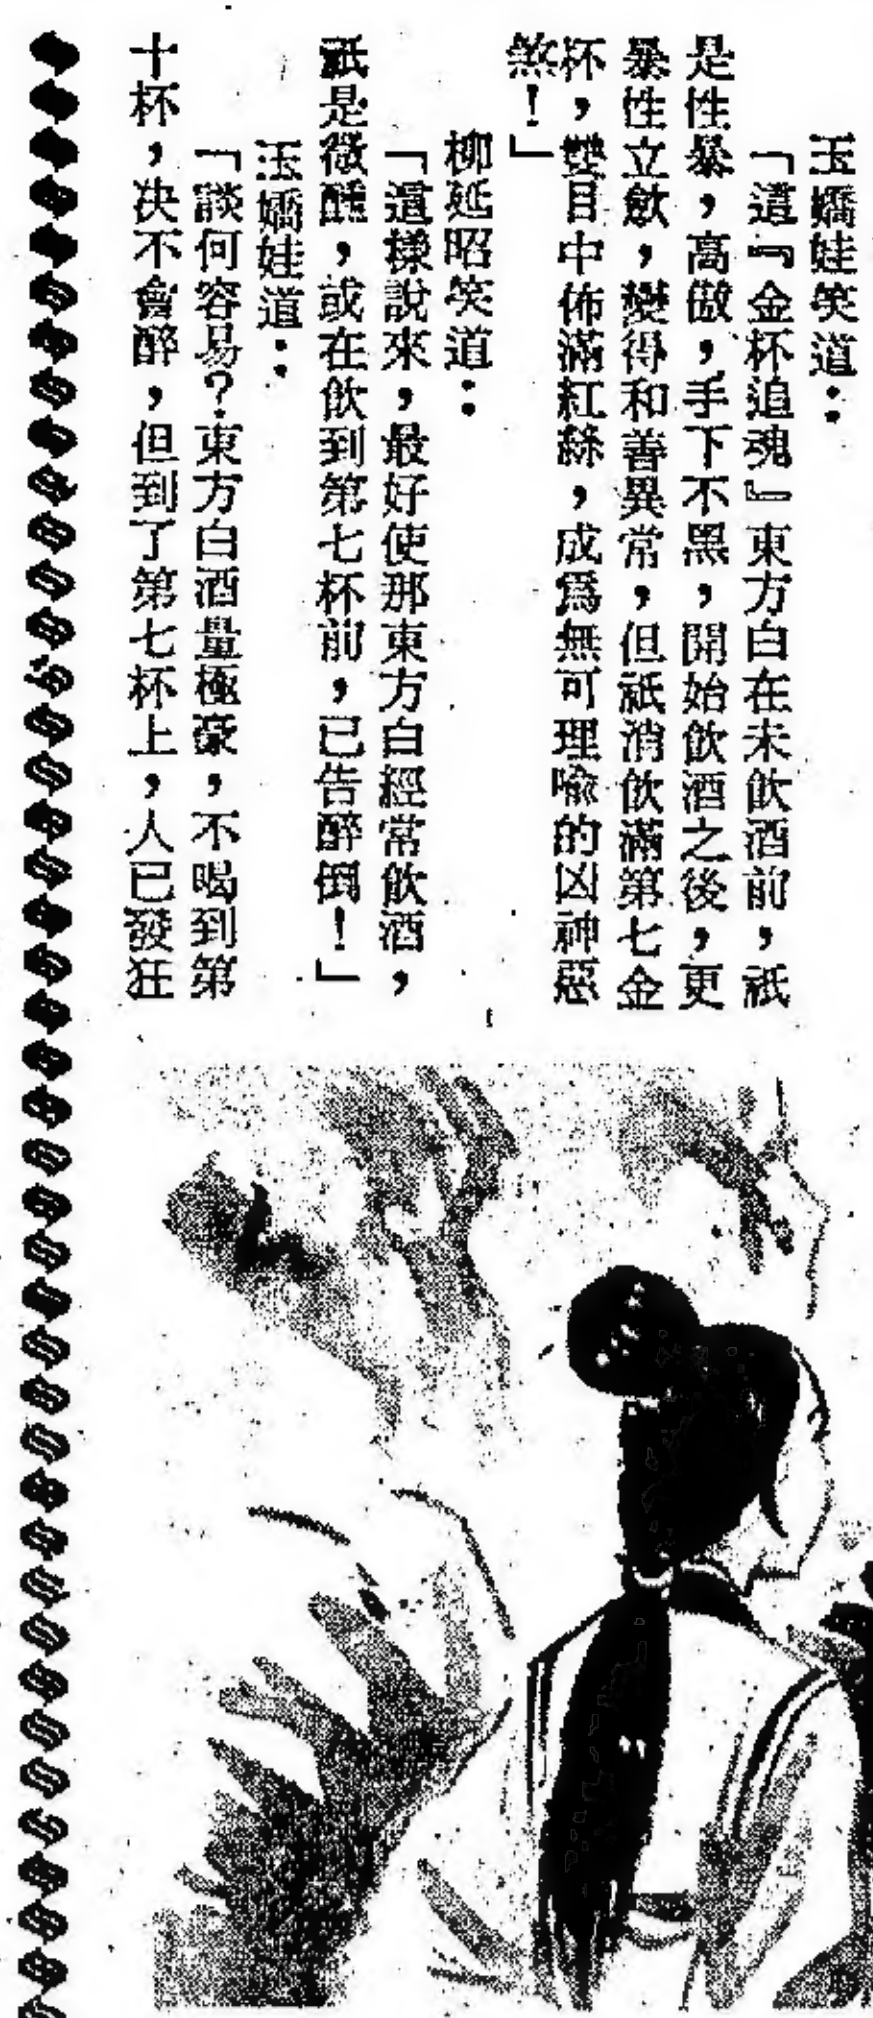 玉嬌娃笑道：
「這『金杯追魂』東方白在未飲酒前，祇
是性暴，高傲，手下不黑，開始飲酒之後，更
暴性立歛，變得和善異常，但祇消飲滿第七金
杯，雙目中佈滿紅絲，成爲無可理喩的凶神惡
煞！」
柳延昭笑道：
「這樣說來，最好使那東方白經常飲酒，
祇是微醺，或在飲到第七杯前，已吿醉倒！」
玉嬌娃道：
「談何容易？東方白酒量極豪，不喝到第
十杯，決不會醉，但到了第七杯上，人已發狂